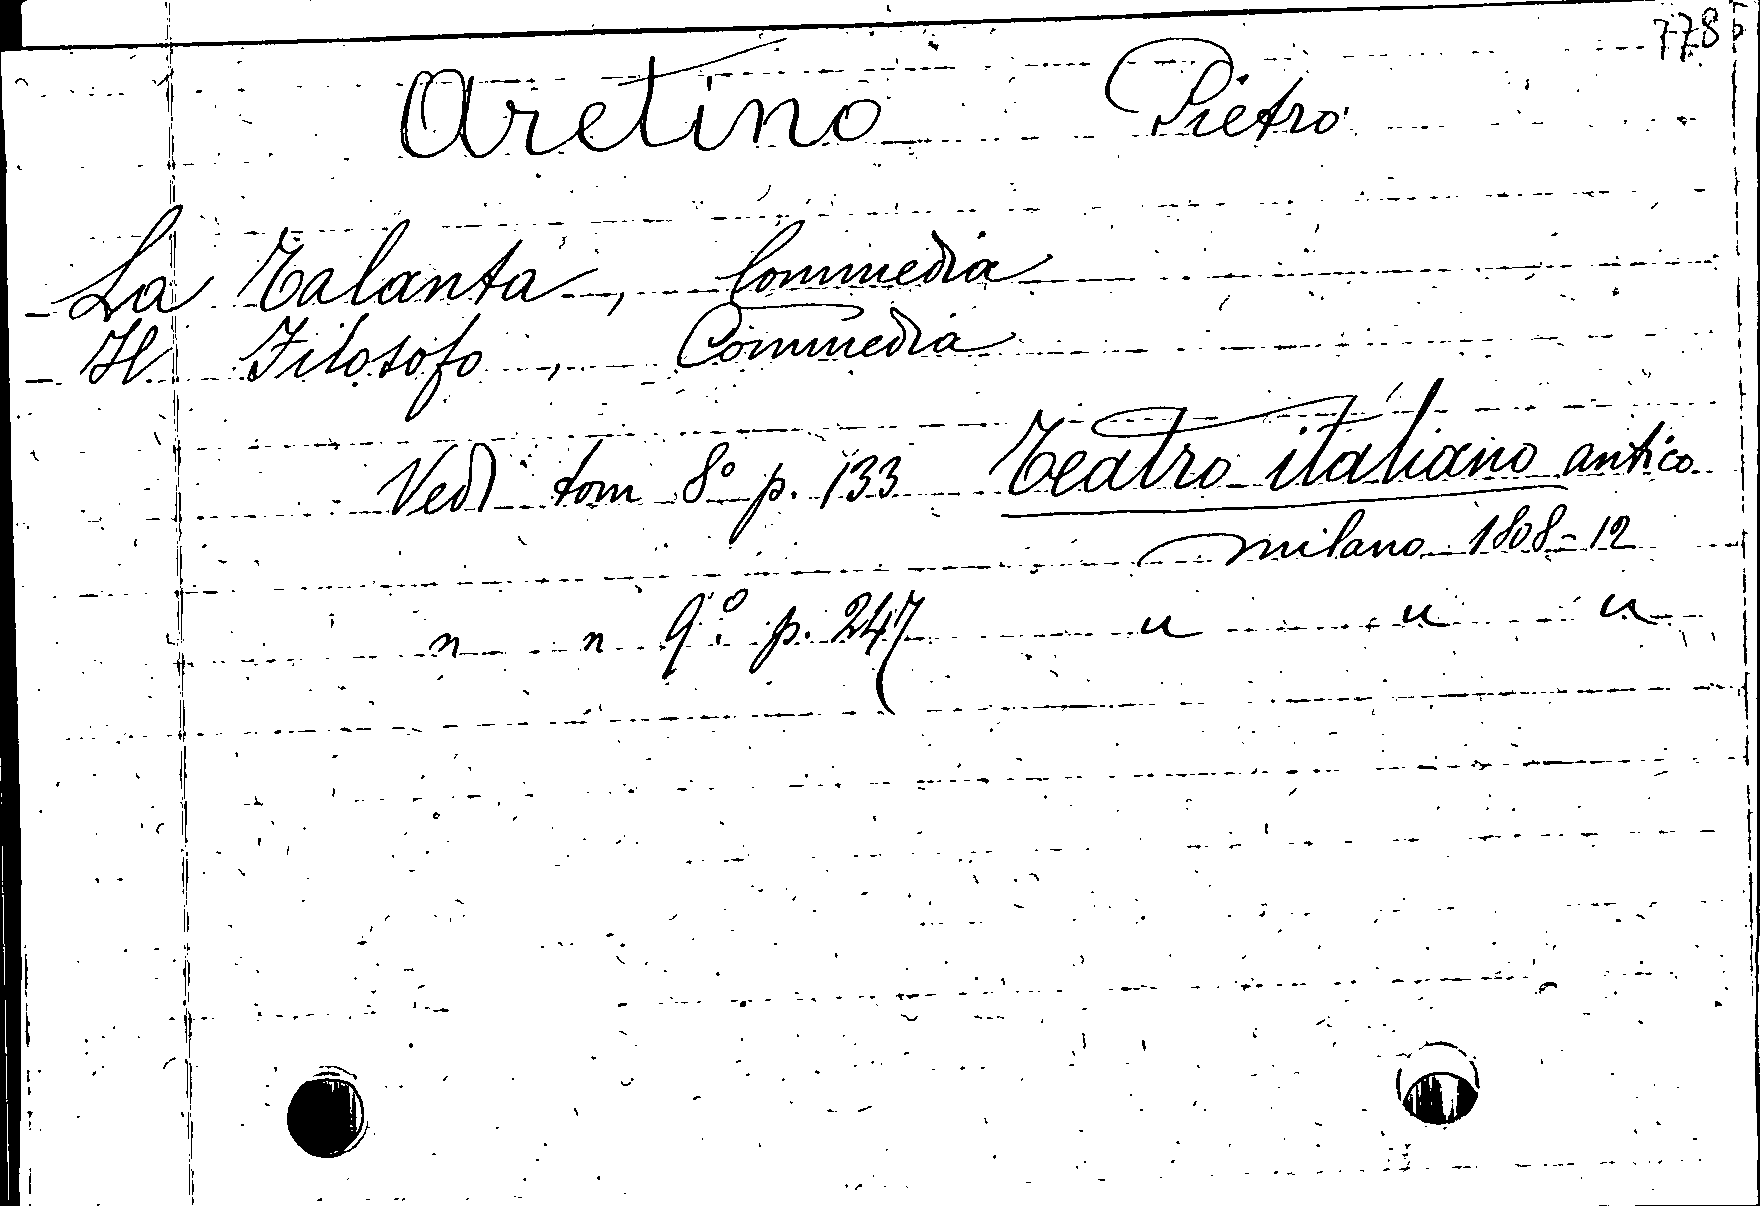 7785
Aretino Pietro
La Talanta, Commedia
Il Filosofo, Commedia
Vedi tom 8º p. 133 Teatro italiano antico
Milano 1808-12
" " 9º. p. 247 " " "